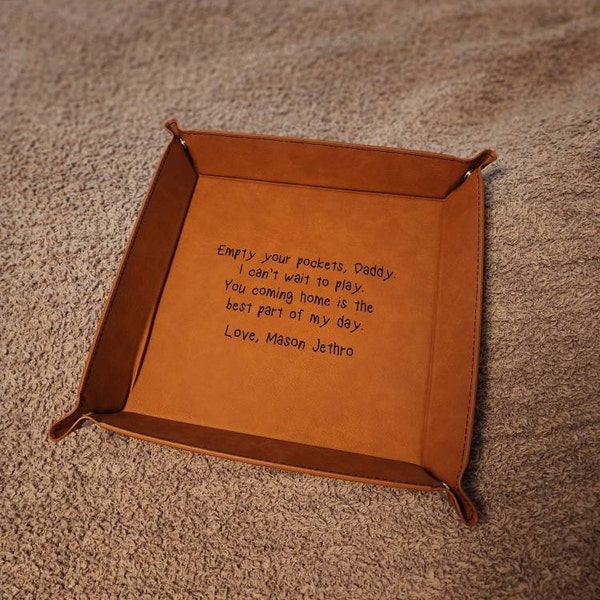 Empty your pockets, Daddy.
I can't wait to play.
You coming home is the
best part of my day.
Love, Mason Jethro